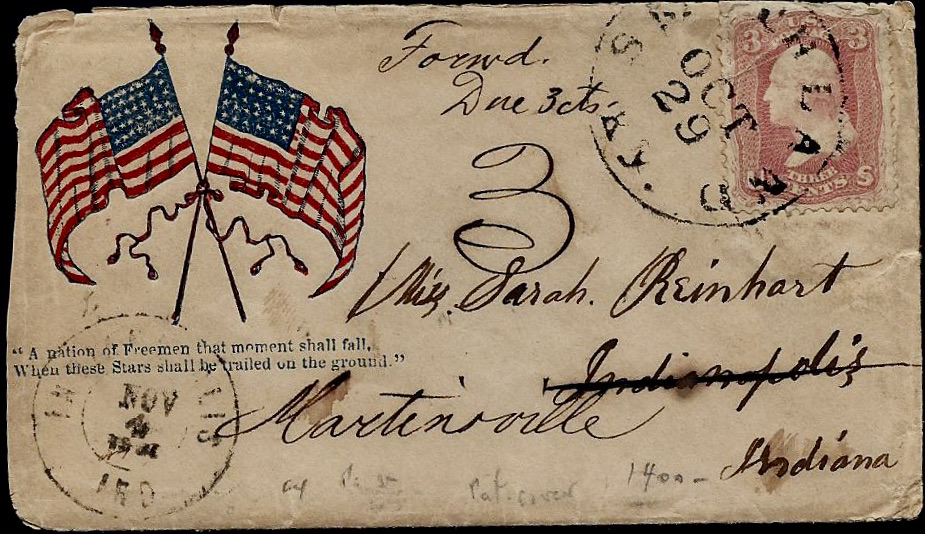 Forwd.
Due 3cts.
3
OCT
29
3 U.S. 3
THREE
CENTS
Miss. Sarah. Reinhart
"A nation of Freemen that moment shall fall,
When these Stars shall be trailed on the ground."
Indianpolis
Martinsville
Indiana
NOV
IND
Pat. cover 1400-